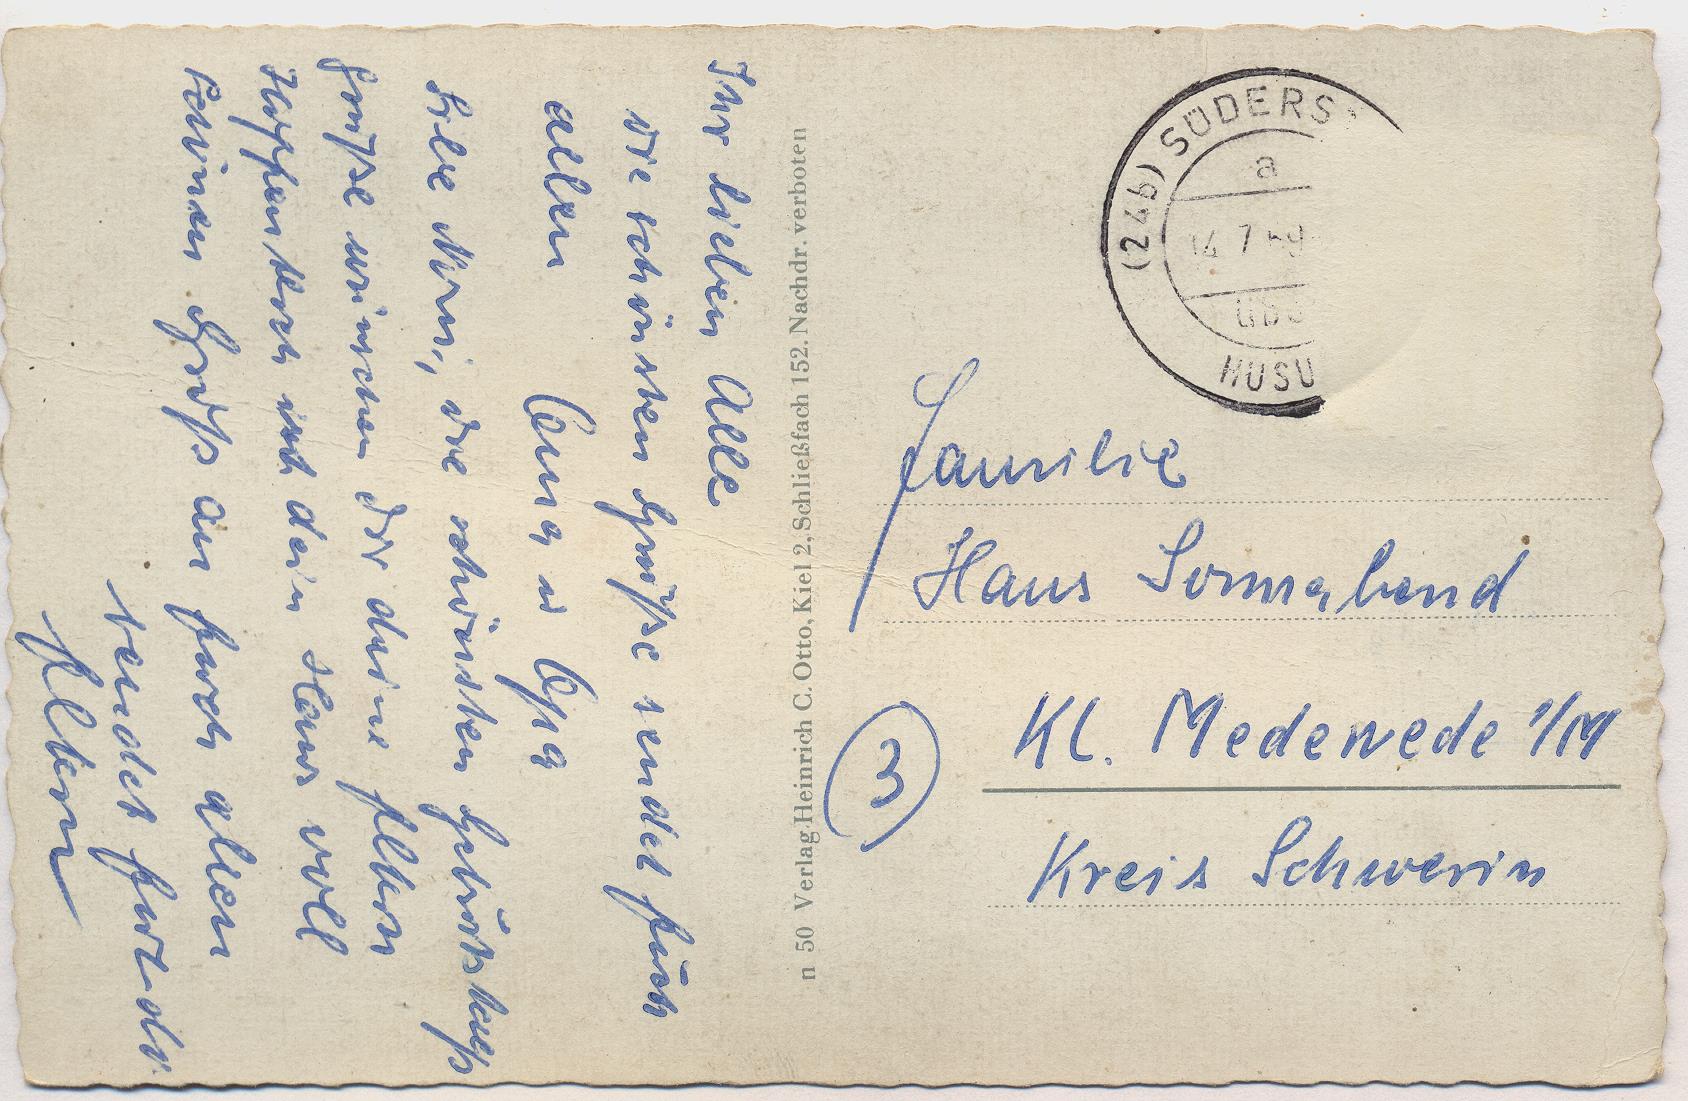 Ihr lieben Alle
die schönsten Grüße sendet Euch
allen
Oma u Opa
Liebe, die schönsten Geburtstags
grüße wünschen dir deine Eltern
Hoffentlich ist dein Haus voll
Gruß an Euch allen
sendet
Eltern
n 50 Verlag Heinrich C. Otto, Kiel 2, Schließfach 152. Nachdr. verboten
(24b) SÜDERS
a
14.7.59
HUSU
Familie
Hans Sonnabend
3
Kl. Medewede i/M
Kreis Schwerin